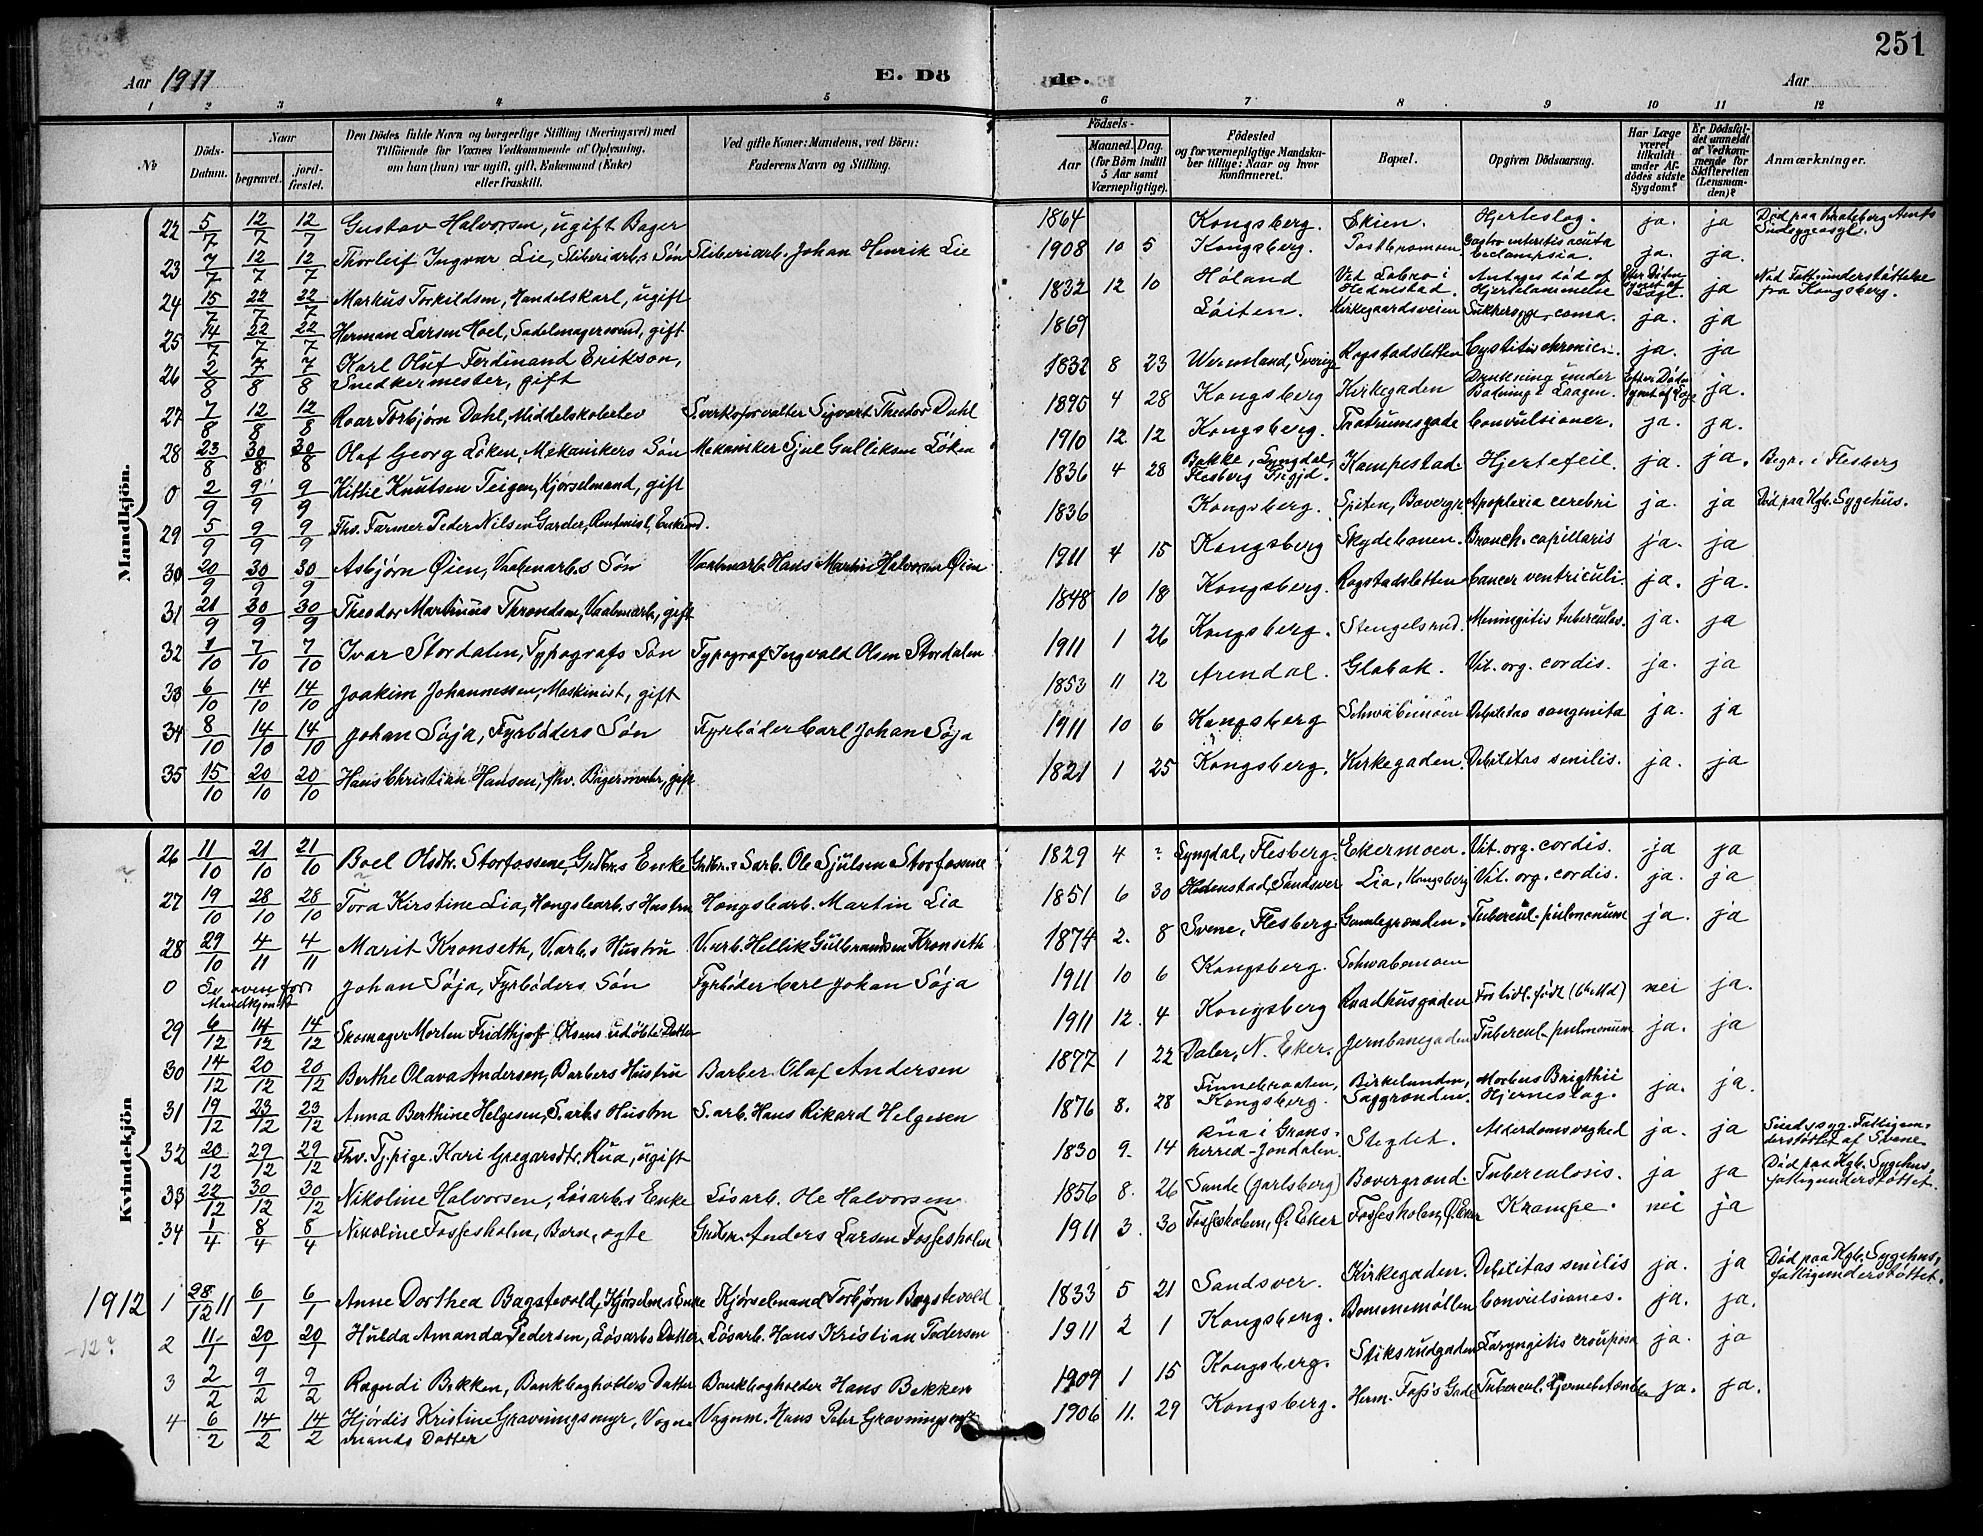 251
Aar 1911 E. Dö de. Aar
1 2 3 4 5 6 7 8 9 10 11 12
No
Döds-Datum.
Naar begravet. jordfæstet.
Den Dödes fulde Navn og borgerlige Stilling (Næringsvei) med Tilföiende for Voxnes Vedkommende af Oplysning, om han (hun) var ugift, gift, Enkemand (Enke) eller fraskilt.
Ved gifte Koner: Mandens, ved Börn: Faderens Navn og Stilling.
Födsels- Aar Maaned. Dag. (for Börn indtil 5 Aar samt Værnepligtige).
Födested og for værnepligtige Mandskaber tillige: Naar og hvor konfirmeret.
Bopæl.
Opgiven Dödsaarsag.
Har Læge været tilkaldt under Afdödes sidste Sygdom?
Er Dödsfaldet anmeldt af Vedkommende for Skifteretten (Lensmanden)?
Anmærkninger.
Mandkjön.
22 5/7 12/7 12/7 Gustav Halvorsen, ugift Bager 1864 Kongsberg. Skien. Hjerteslag. ja. ja Død paa Bratsberg Amts Sindsygeasyl.
23 7/7 12/7 12/7 Thorleif Ingvar Lie, Sliberiarb.s Søn Sliberiarb. Johan Henrik Lie 1908 10 5 Kongsberg. Gastro enteritis acuta Eclampsia. ja. ja.
24 15/7 22/7 22/7 Markus Torkildsen, Handelskarl, ugift 1832 12 10 Høland Ved Labro i Hedenstad. Antages død af Hjertelammelse Efter Døden synet af Lægl. ja Nød Fattigunderstøttelse fra Kongsberg.
25 14/7 22/7 22/7 Herman Larsen Hoel, Sadelmagersvend, gift 1869 Løiten. Kirkegaardsveien Sukkersyge, coma. ja. ja
26 2/8 7/8 7/8 Karl Oluf Ferdinand Erikson, Snedkermester, gift 1832 8 23 Wermland, Sverige Rogstadsletten Cystitis chronic. ja. ja
27 7/8 12/8 12/8 Roar Torbjørn Dahl, Middelskoleelev S.verksforvalter Sigvart Theodor Dahl 1895 4 28 Kongsberg Kirkegaden Drukning under Badning i Laagen. Efter Døden synet af Læge ja.
28 23/8 30/8 30/8 Olaf Georg Løken, Mekanikers Søn Mekaniker Sjul Gulliksen Løken 1910 12 12 Kongsberg. Convulsioner. ja. ja.
0 2/9 9/9 9/9 Kittil Knutsen Teigen, Kjørselmand, gift 1836 4 28 Bakke, Lyngdal, Flesberg Kampestad. Hjertefeil. ja. ja. Begr. i Flesberg
29 5/9 9/9 9/9 Fhv. Farmer Peder Nilsen Garder, Rentenist, Enkemd. 1836 Kongsberg. Spiten, Bovergr. Apoplexia cerebri ja. ja Død paa Kgb. Sygehus.
30 20/9 30/9 30/9 Asbjørn Øien, Vaabenarb.s Søn Vaabenarb. Hans Martin Halvorsen Øien 1911 4 15 Kongsberg Skydebanen. Bronch. capillaris ja. ja
31 21/9 30/9 30/9 Theodor Martinius Throndsen, Vaabenarb., gift 1848 10 18 Kongsberg. Rogstadsletten Cancer ventriculi. ja. ja.
32 1/10 7/10 7/10 Ivar Stordalen, Typografs Søn Typograf Ingvald Olsen Stordalen 1911 1 26 Kongsberg. Stengelsrud. Meningitis tuberculos. ja. ja
33 6/10 14/10 14/10 Joakim Johannessen, Maskinist, gift 1853 11 12 Arendal. Glabak. Vit. org. cordis. ja. ja
34 8/10 14/10 14/10 Johan Søja, Fyrbøders Søn Fyrbøder Carl Johan Søja 1911 10 6 Kongsberg Schwabemoen Debilitas congenita ja. ja
35 15/10 20/10 20/10 Hans Christian Hansen, fhv. Bagermester, gift 1821 1 25 Kongsberg. Kirkegaden. Debilitas senilis. ja. ja
Kvindekjön
26 11/10 21/10 21/10 Boel Olsdtr. Storfossene, Grdbr.s Enke Grdbr. & Sarb. Ole Sjulsen Storfossene 1829 4 ? Lyngdal, Flesberg. Ekermoen. Vit. org. cordis. ja ja
27 19/10 28/10 28/10 Tora Kirstine Lia, Hengslearb.s Hustru Hengslearb. Martin Lia 1851 6 30 Hedenstad, Sandsver Lia, Kongsberg Vit. org. cordis. ja. ja
28 29/10 4/11 4/11 Marit Kronseth, V.arb.s Hustru V.arb. Hellik Gulbrandsen Kronseth 1874 2. 8 Svene, Flesberg Gamlegronden. Tubercul. pulmonum ja. ja
0 Se ovenfor Mandkjønst Johan Søja, Fyrbøders Søn Fyrbøder Carl Johan Søja 1911 10 6 Kongsberg. Schwabemoen
29 6/12 14/12 14/12 Skomager Morten Fridthjof Olsens udøbte Datter 1911 12. 4 Kongsberg Raadhusgaden For tidl. født (6te Md) nei ja.
30 14/12 20/12 20/12 Berthe Olava Andersen, Barbers Hustru Barber Olaf Andersen 1877 1 22 Daler, N. Eker. Jernbanegaden Tubercul. pulmonum ja. ja
31 19/12 23/12 23/12 Anna Berthine Helgesen, S.arb.s Hustru S.arb. Hans Rikard Helgesen 1876 8. 28 Finnebraaten, Kongsberg. Birkelunden, Saggronden. Morbus Brigthii Hjerneslag. ja. ja.
32 20/12 29/12 29/12 Fhv. Tj.pige Kari Gregarsdtr. Rua, ugift 1830 9. 14 Rua i Gransherred-Jondalen. Steglet. Alderdomsvaghed ja. ja Sindssyg. Fattigunderstøttet af Svene
33 22/12 30/12 30/12 Nikoline Halvorsen, Løsarb.s Enke Løsarb. Ole Halvorsen 1856 8. 26 Sande (Jarlsberg) Bovergrond. Tuberculosis. ja ja Død paa Kgb. Sygehus, fattigunderstøttet.
34 1/4 8/4 8/4 Nikoline Fossesholm, Barn, ægte Grdbr. Anders Larsen Fossesholm 1911 3 30 Fossesholm, Ø. Eker Fossesholm, Ø. Eker Krampe. nei ja
1912 1 28/12 11 6/1 6/1 Anne Dorthea Bagstevold, Kjørselm.s Enke Kjørselmand Torbjørn Bagstevold 1833 5 21 Sandsver. Kirkegaden. Debilitas senilis ja. ja Død paa Kgb. Sygehus, fattigunderstøttet.
-12? 2 11/1 20/1 20/1 Hulda Amanda Pedersen, Løsarb.s Datter Løsarb. Hans Kristian Pedersen 1911 2 1 Kongsberg. Bommemøllen Convulsiones. ja. ja.
3 2/2 9/2 9/2 Ragndi Bekken, Bankbogholders Datter Bankbogholder Hans Bekken 1909 1 15 Kongsberg. Stiksrudgaden Laryngitis crouposa ja. ja
4 6/2 14/2 14/2 Hjørdis Kristine Gravningsmyr, Vognmands Datter Vognm. Hans Peter Gravningsmyr 1906 11. 29 Kongsberg. Herm. Foss's Gade Tubercul. Hjernebetændelse ja. ja.